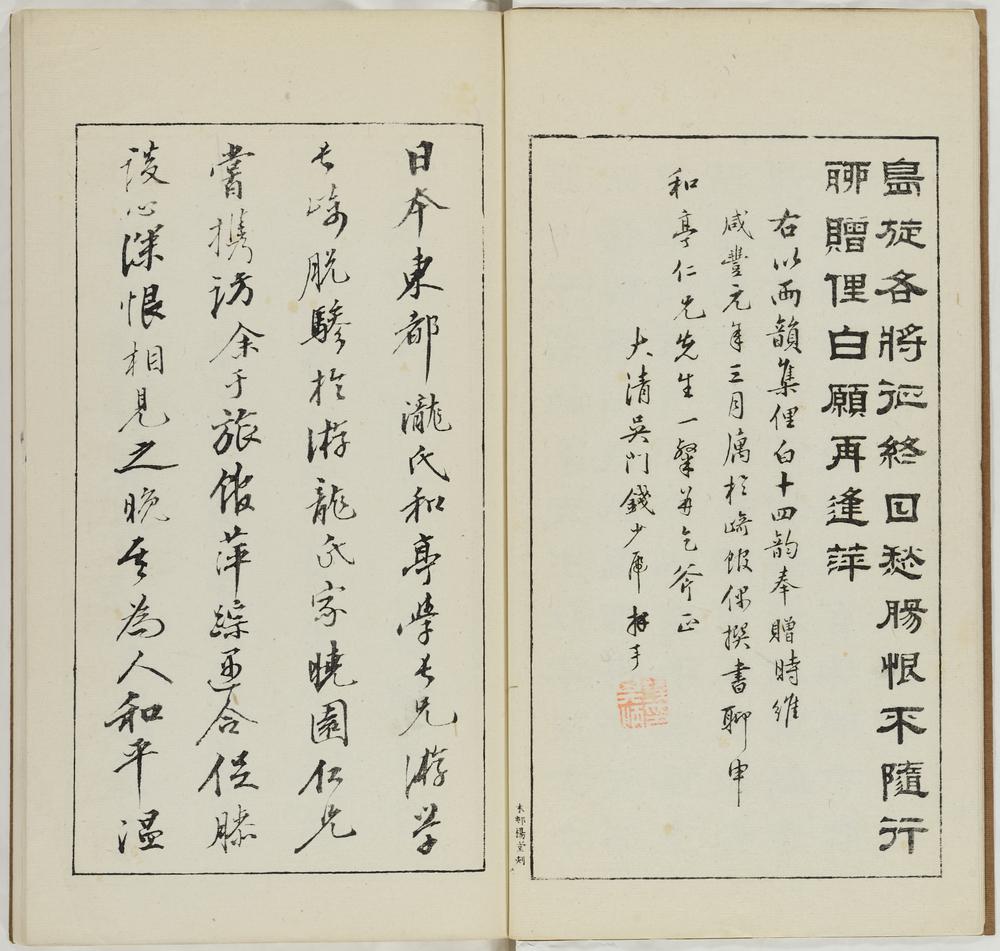 島旋各將征終日愁腸恨不隨行
聊贈俚白願再逢萍
右以兩韻集俚白十四韵奉贈時維
咸豐元年三月厲於崎館偶撰書聊申
和亭仁兄先生一粲並乞斧正
大清吳門錢少虎拜手
日本東都瀧氏和亭學長兄游学
長崎脱驂於游龍氏家曉園仁兄
嘗携訪余于旅館萍綜遇合促膝
談心深恨相見之晚其為人和平温